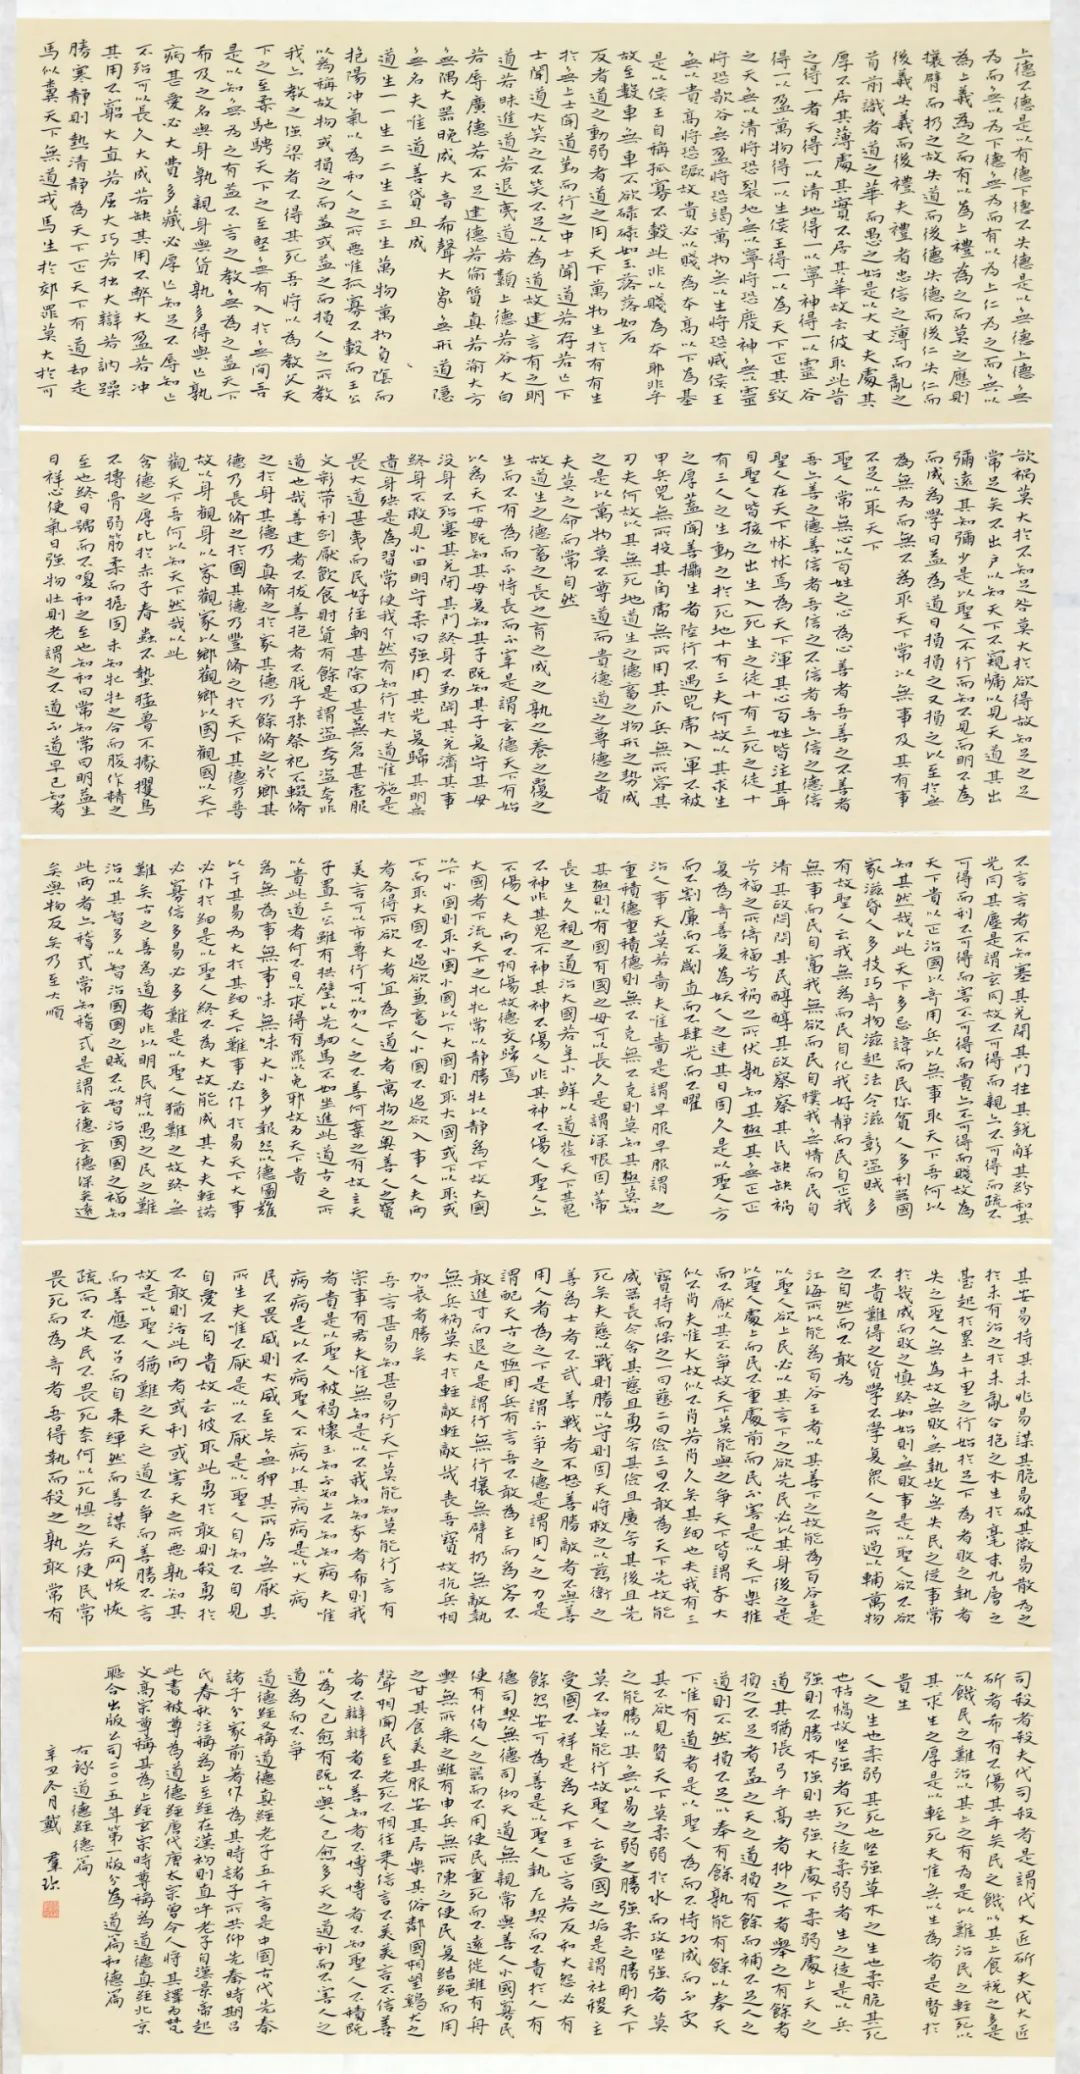 上德不德是以有德下德不失德是以無德上德無
為而無以為下德無為而有以為上仁為之而無以
為上義為之而有以為上禮為之而莫之應則
攘臂而扔之故失道而後德失德而後仁失仁而
後義失義而後禮夫禮者忠信之薄而亂之
首前識者道之華而愚之始是以大丈夫處其
厚不居其薄處其實不居其華故去彼取此昔
之得一者天得一以清地得一以寧神得一以靈谷
得一以盈萬物得一以生侯王得一以為天下正其致
之天無以清將恐裂地無以寧將恐廢神無以靈
將恐歇谷無盈將恐竭萬物無以生將恐滅侯王
無以貴高將恐蹶故貴必以賤為本高以下為基
是以侯王自稱孤寡不穀此非以賤為本耶非乎
故至數車無車不欲琭琭如玉落落如石
反者道之動弱者道之用天下萬物生於有有生
於無上士聞道勤而行之中士聞道若存若亡下
士聞道大笑之不笑不足以為道故建言有之明
道若昧進道若退夷道若纇上德若谷大白
若辱廣德若不足建德若偷質真若渝大方
無隅大器晚成大音希聲大象無形道隱
無名夫唯道善貸且成
道生一一生二二生三三生萬物萬物負陰而
抱陽沖氣以為和人之所惡唯孤寡不穀而王公
以為稱故物或損之而益或益之而損人之所教
我亦教之強梁者不得其死吾將以為教父天
下之至柔馳騁天下之至堅無有入於無間吾
是以知無為之有益不言之教無為之益天下
希及之名與身孰親身與貨孰多得與亡孰
病甚愛必大費多藏必厚亡知足不辱知止
不殆可以長久大成若缺其用不弊大盈若沖
其用不窮大直若屈大巧若拙大辯若訥躁
勝寒靜則熱清靜為天下正天下有道却走
馬以糞天下無道戎馬生於郊罪莫大於可
欲禍莫大於不知足咎莫大於欲得故知足之足
常足矣不出戶以知天下不窺牖以見天道其出
彌遠其知彌少是以聖人不行而知不見而明不為
而成為學日益為道日損損之又損之以至於無
為無為而無不為取天下常以無事及其有事
不足以取天下
聖人常無心以百姓之心為心善者吾善之不善者
吾亦善之德善信者吾信之不信者吾亦信之德信
聖人在天下怵怵焉為天下渾其心百姓皆注其耳
目聖人皆孩之出生入死生之徒十有三死之徒十
有三人之生動之於死地十有三夫何故以其求生
之厚蓋聞善攝生者陸行不遇兕虎入軍不被
甲兵兕無所投其角虎無所用其爪兵無所容其
刃夫何故以其無死地道生之德畜之物形之勢成
之是以萬物莫不尊道而貴德道之尊德之貴
夫莫之命而常自然
故道生之德畜之長之育之成之孰之養之覆之
生而不有為而不恃長而不宰是謂玄德天下有始
以為天下母既知其母復知其子既知其子復守其母
沒身不殆塞其兌閉其門終身不勤開其兌濟其事
終身不救見小曰明守柔曰強用其光復歸其明無
遺身殃是為習常使我介然有知行於大道唯施是
畏大道甚夷而民好徑朝甚除田甚蕪倉甚虛服
文彩帶利劍厭飲食財貨有餘是謂盜夸盜夸非
道也哉善建者不拔善抱者不脫子孫祭祀不輟脩
之於身其德乃真脩之於家其德乃餘脩之於鄉其
德乃長脩之於國其德乃豐脩之於天下其德乃普
故以身觀身以家觀家以鄉觀鄉以國觀國以天下
觀天下吾何以知天下然哉以此
含德之厚比於赤子毒蟲不螫猛獸不據攫鳥
不搏骨弱筋柔而握固未知牝牡之合而朘作精之
至也終日號而不嗄和之至也知和曰常知常曰明益生
日祥心使氣曰強物壯則老謂之不道不道早已知者
不言言者不知塞其兌閉其門挫其銳解其紛和其
光同其塵是謂玄同故不可得而親亦不可得而疏不
可得而利不可得而害不可得而貴亦不可得而賤故為
天下貴以正治國以奇用兵以無事取天下吾何以
知其然哉以此天下多忌諱而民彌貧人多利器國
家滋昏人多技巧奇物滋起法令滋彰盜賊多
有故聖人云我無為而民自化我好靜而民自正我
無事而民自富我無欲而民自樸我無情而民自
清其政悶悶其民醇醇其政察察其民缺缺禍
兮福之所倚福兮禍之所伏孰知其極其無正正
復為奇善復為妖人之迷其日固久是以聖人方
而不割廉而不劌直而不肆光而不曜
治人事天莫若嗇夫唯嗇是謂早服早服謂之
重積德重積德則無不克無不克則莫知其極莫知
其極則可以有國有國之母可以長久是謂深根固蒂
長生久視之道治大國若烹小鮮以道莅天下其鬼
不神非其鬼不神其神不傷人非其神不傷人聖人亦
不傷人夫兩不相傷故德交歸焉
大國者下流天下之牝牝常以靜勝牡以靜為下故大國
以下小國則取小國小國以下大國則取大國或下以取或
下而取大國不過欲兼畜人小國不過欲入事人夫兩
者各得所欲大者宜為下道者萬物之奧善人之寶
美言可以市尊行可以加人人之不善何棄之有故立天
子置三公雖有拱璧以先駟馬不如坐進此道古之所
以貴此道者何不日以求得有罪以免耶故為天下貴
為無為事無事味無味大小多少報怨以德圖難
以於其易為大於其細天下難事必作於易天下大事
必作於細是以聖人終不為大故能成其大夫輕諾
必寡信多易必多難是以聖人猶難之故終無
難矣古之善為道者非以明民將以愚之民之難
治以其智多以智治國國之賊不以智治國國之福知
此兩者亦稽式常知稽式是謂玄德玄德深矣遠
矣與物反矣乃至大順
其安易持其未兆易謀其脆易破其微易散為之
於未有治之於未亂合抱之木生於毫末九層之
臺起於累土千里之行始於足下為者敗之執者
失之聖人無為故無敗無執故無失民之從事常
於幾成而敗之慎終如始則無敗事是以聖人欲不欲
不貴難得之貨學不學復眾人之所過以輔萬物
之自然而不敢為
江海所以能為百谷王者以其善下之故能為百谷王是
以聖人欲上民必以其言下之欲先民必以其身後之是
以聖人處上而民不重處前而民不害是以天下樂推
而不厭以其不爭故天下莫能與之爭天下皆謂我大
似不肖夫唯大故似不肖若肖久矣其細也夫我有三
寶持而保之一曰慈二曰儉三曰不敢為天下先故能
成器長今舍其慈且勇舍其儉且廣舍其後且先
死矣夫慈以戰則勝以守則固天將救之以慈衛之
善為士者不武善戰者不怒善勝敵者不與善
用人者為之下是謂不爭之德是謂用人之力是
謂配天古之極用兵有言吾不敢為主而為客不
敢進寸而退尺是謂行無行攘無臂扔無敵執
無兵禍莫大於輕敵輕敵幾喪吾寶故抗兵相
加哀者勝矣
吾言甚易知甚易行天下莫能知莫能行言有
宗事有君夫唯無知是以不我知知我者希則我
者貴是以聖人被褐懷玉知不知上不知知病夫唯
病病是以不病聖人不病以其病病是以不病
民不畏威則大威至矣無狎其所居無厭其
所生夫唯不厭是以不厭是以聖人自知不自見
自愛不自貴故去彼取此勇於敢則殺勇於
不敢則活此兩者或利或害天之所惡孰知其
故是以聖人猶難之天之道不爭而善勝不言
而善應不召而自來繟然而善謀天网恢恢
疏而不失民不畏死奈何以死懼之若使民常
畏死而為奇者吾得執而殺之孰敢常有
司殺者殺夫代司殺者是謂代大匠斫夫代大匠
斫者希有不傷其手矣民之饑以其上食稅之多是
以饑民之難治以其上之有為是以難治民之輕死以
其求生之厚是以輕死夫唯無以生為者是賢於
貴生
人之生也柔弱其死也堅強草木之生也柔脆其死
也枯槁故堅強者死之徒柔弱者生之徒是以兵
強則不勝木強則共強大處下柔弱處上天之
道其猶張弓乎高者抑之下者舉之有餘者
損之不足者益之天之道損有餘而補不足人之
道則不然損不足以奉有餘孰能有餘以奉天
下唯有道者是以聖人為而不恃功成而不處
其不欲見賢天下莫柔弱於水而攻堅強者莫
之能勝以其無以易之弱之勝強柔之勝剛天下
莫不知莫能行故聖人云受國之垢是謂社稷主
受國不祥是為天下王正言若反和大怨必有
餘怨安可為善是以聖人執左契而不責於人有
德司契無德司徹天道無親常與善人小國寡民
使有什伯人之器而不用使民重死而不遠徙雖有舟
輿無所乘之雖有甲兵無所陳之使民復結繩而用
之甘其食美其服安其居樂其俗鄰國相望雞犬之
聲相聞民至老死不相往來信言不美美言不信善
者不辯辯者不善知者不博博者不知聖人不積既
以為人己愈有既以與人己愈多天之道利而不害人之
道為而不爭
道德經又稱道德真經老子五千言是中國古代先秦
諸子分家前著作為其時諸子所共仰先秦時期呂
氏春秋注稱為上至經在漢初則直呼老子自漢景帝起
此書被尊為道德經唐代唐太宗曾令人將其譯為梵
文高宗尊稱其為上經玄宗時尊稱為道德真經北京
聯合出版公司二〇一五年第一版分為道篇和德篇
右錄道德經德篇
辛丑冬月戴